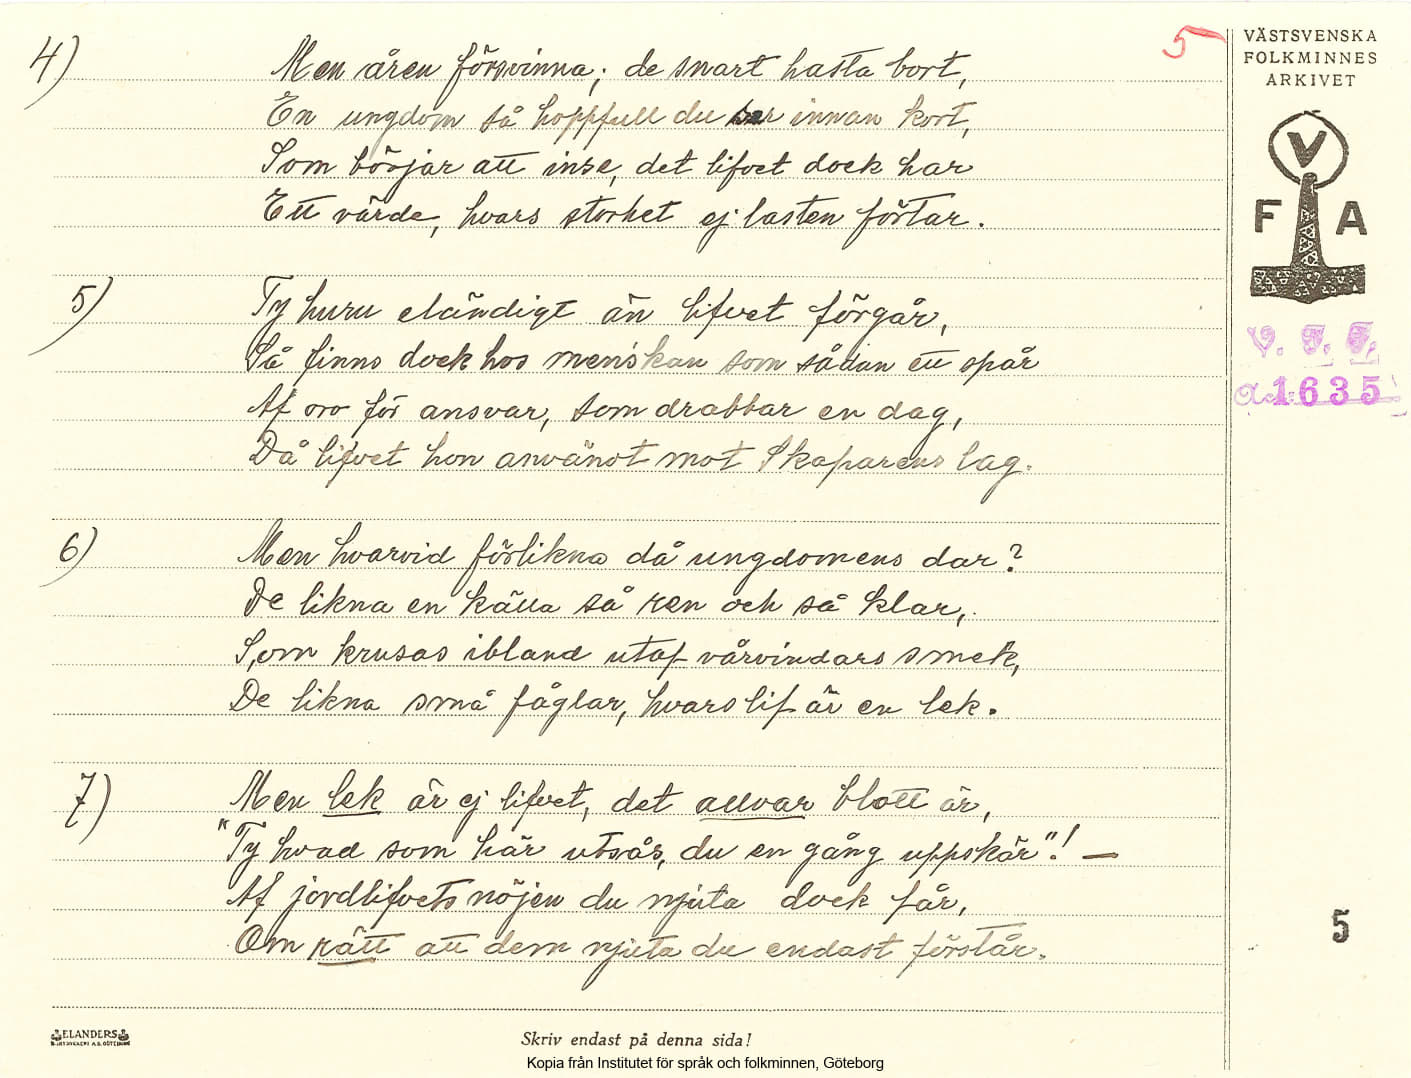 5
VÄSTSVENSKA
FOLKMINNES
ARKIVET
V
F A
V. F. F.
acc: 1635
4) Men åren försvinna; de snart hasta bort,
En ungdom så hoppfull du ser innan kort,
Som börjar att inse, det lifvet dock har
Ett värde, hvars storhet ej lasten förtar.
5) Ty huru eländigt än lifvet förgår,
Så finns dock hos menskan som sådan ett spår
Af oro för ansvar, som drabbar en dag,
Då lifvet hon användt mot Skaparens lag.
6) Men hvarvid förlikna då ungdomens dar?
De likna en källa så ren och så klar,
Som krusas ibland utaf vårvindars smek,
De likna små fåglar, hvars lif är en lek.
7) Men lek är ej lifvet, det allvar blott är,
"Ty hvad som här utsås, du en gång uppskär"! —
Af jordlifvets nöjen du njuta dock får,
Om rätt att dem njuta du endast förstår.
5
ELANDERS
Skriv endast på denna sida!
Kopia från Institutet för språk och folkminnen, Göteborg